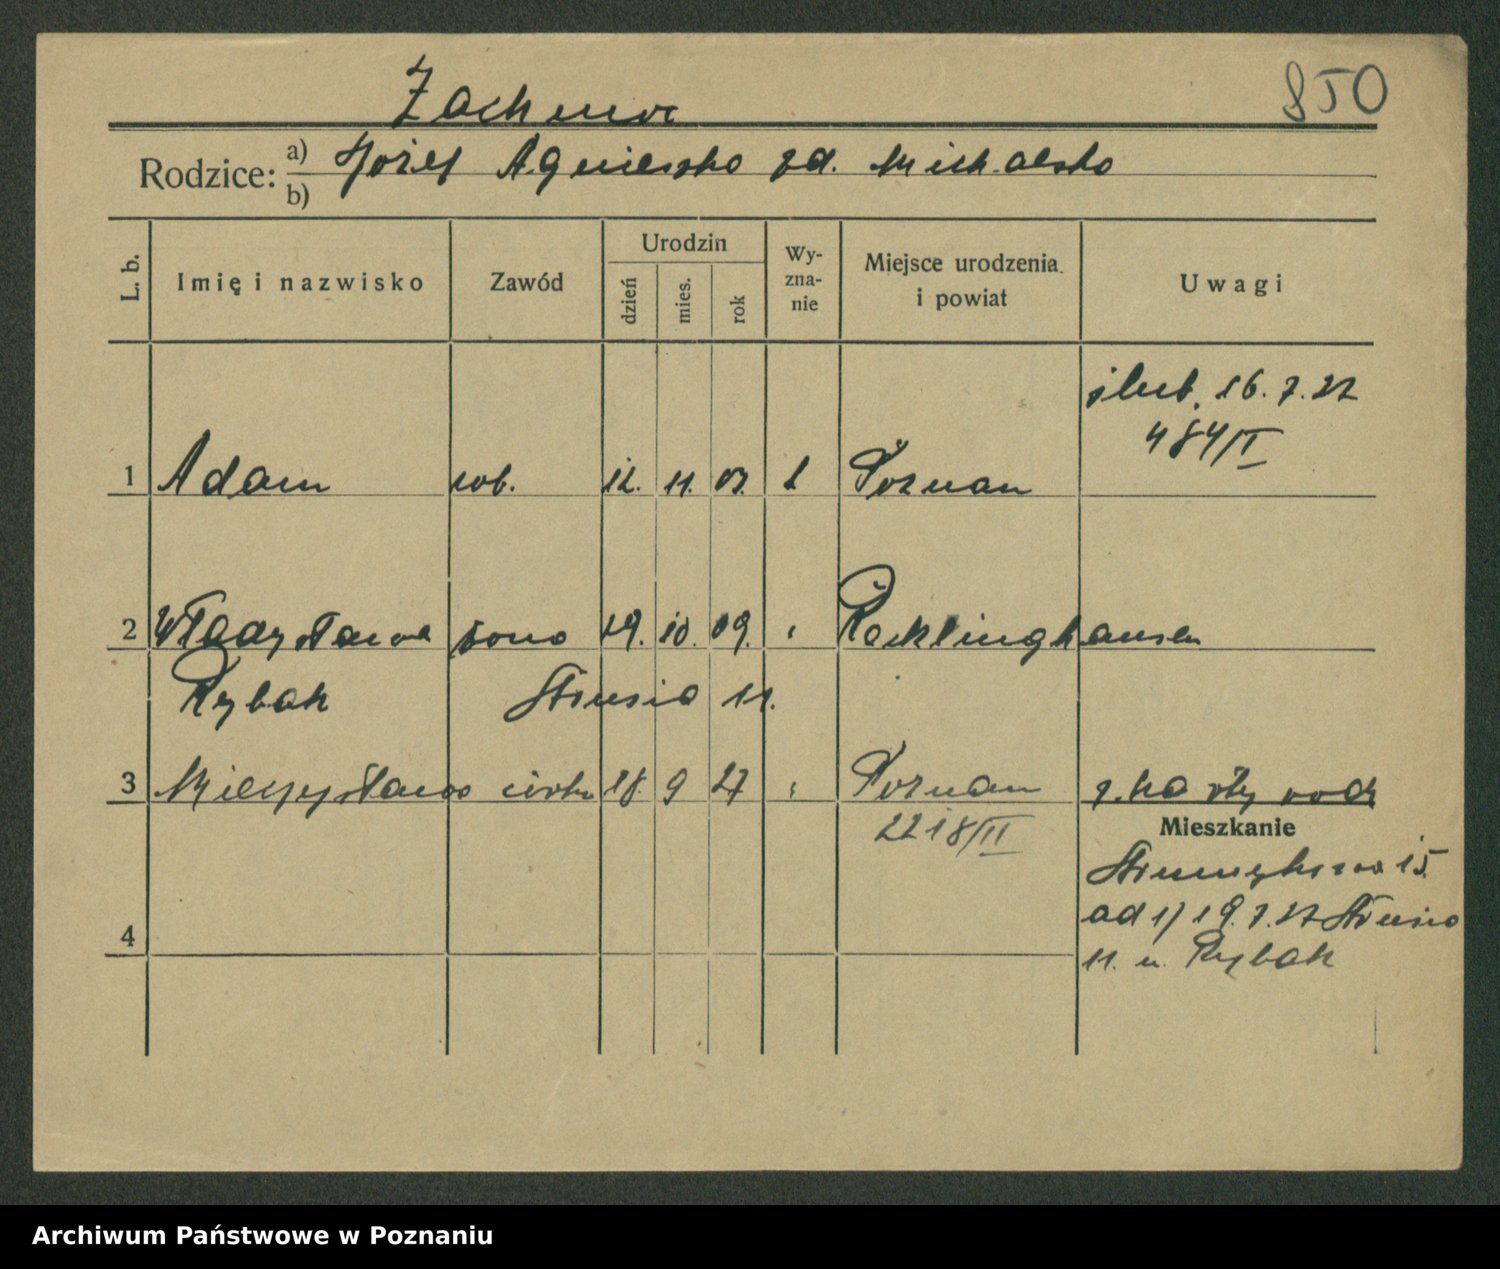 850
Rodzice: a) Józef Agnieszka zd. Michalska
b)
L. b.
Imię i nazwisko
Zawód
Urodzin
dzień
mies.
rok
Wy-
zna-
nie
Miejsce urodzenia
i powiat
Uwagi
ślub. 16.7.27
484/I
1 Adam rob. 12. 11. 03. Poznan
2 Władysława żona 19. 10. 09. " Recklinghausen
Rybak Strusia 11.
3 Mieczysława córka 18. 9 27 " Poznan
2218/II
Mieszkanie
15.
ad 1) 19.7.27 Strusia
11. u. Rybak
4
Archiwum Państwowe w Poznaniu